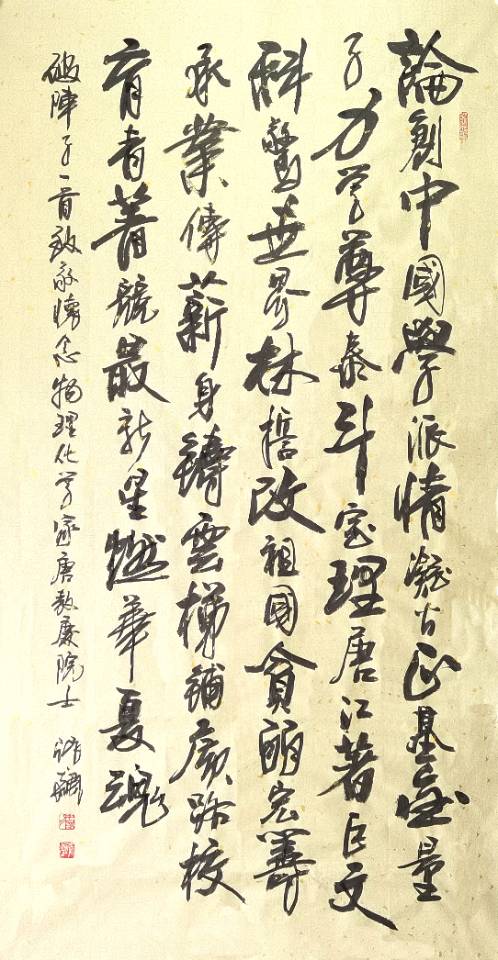 論創中國學派情凝基量
子力學尊泰斗理唐江著巨文
科驚世界林改祖國貧宏籌
承業傳薪身鑄雲梯鋪廣路校
育青菁競最新星燃華夏魂
破陣子一首致敬懷念物理化學家唐敖慶院士